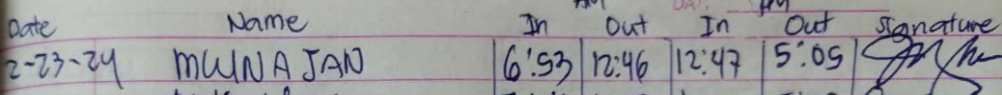 Date Name In Out In Out Signature
2-23-24 MUNAJAN 6:53 12:46 12:47 5:05